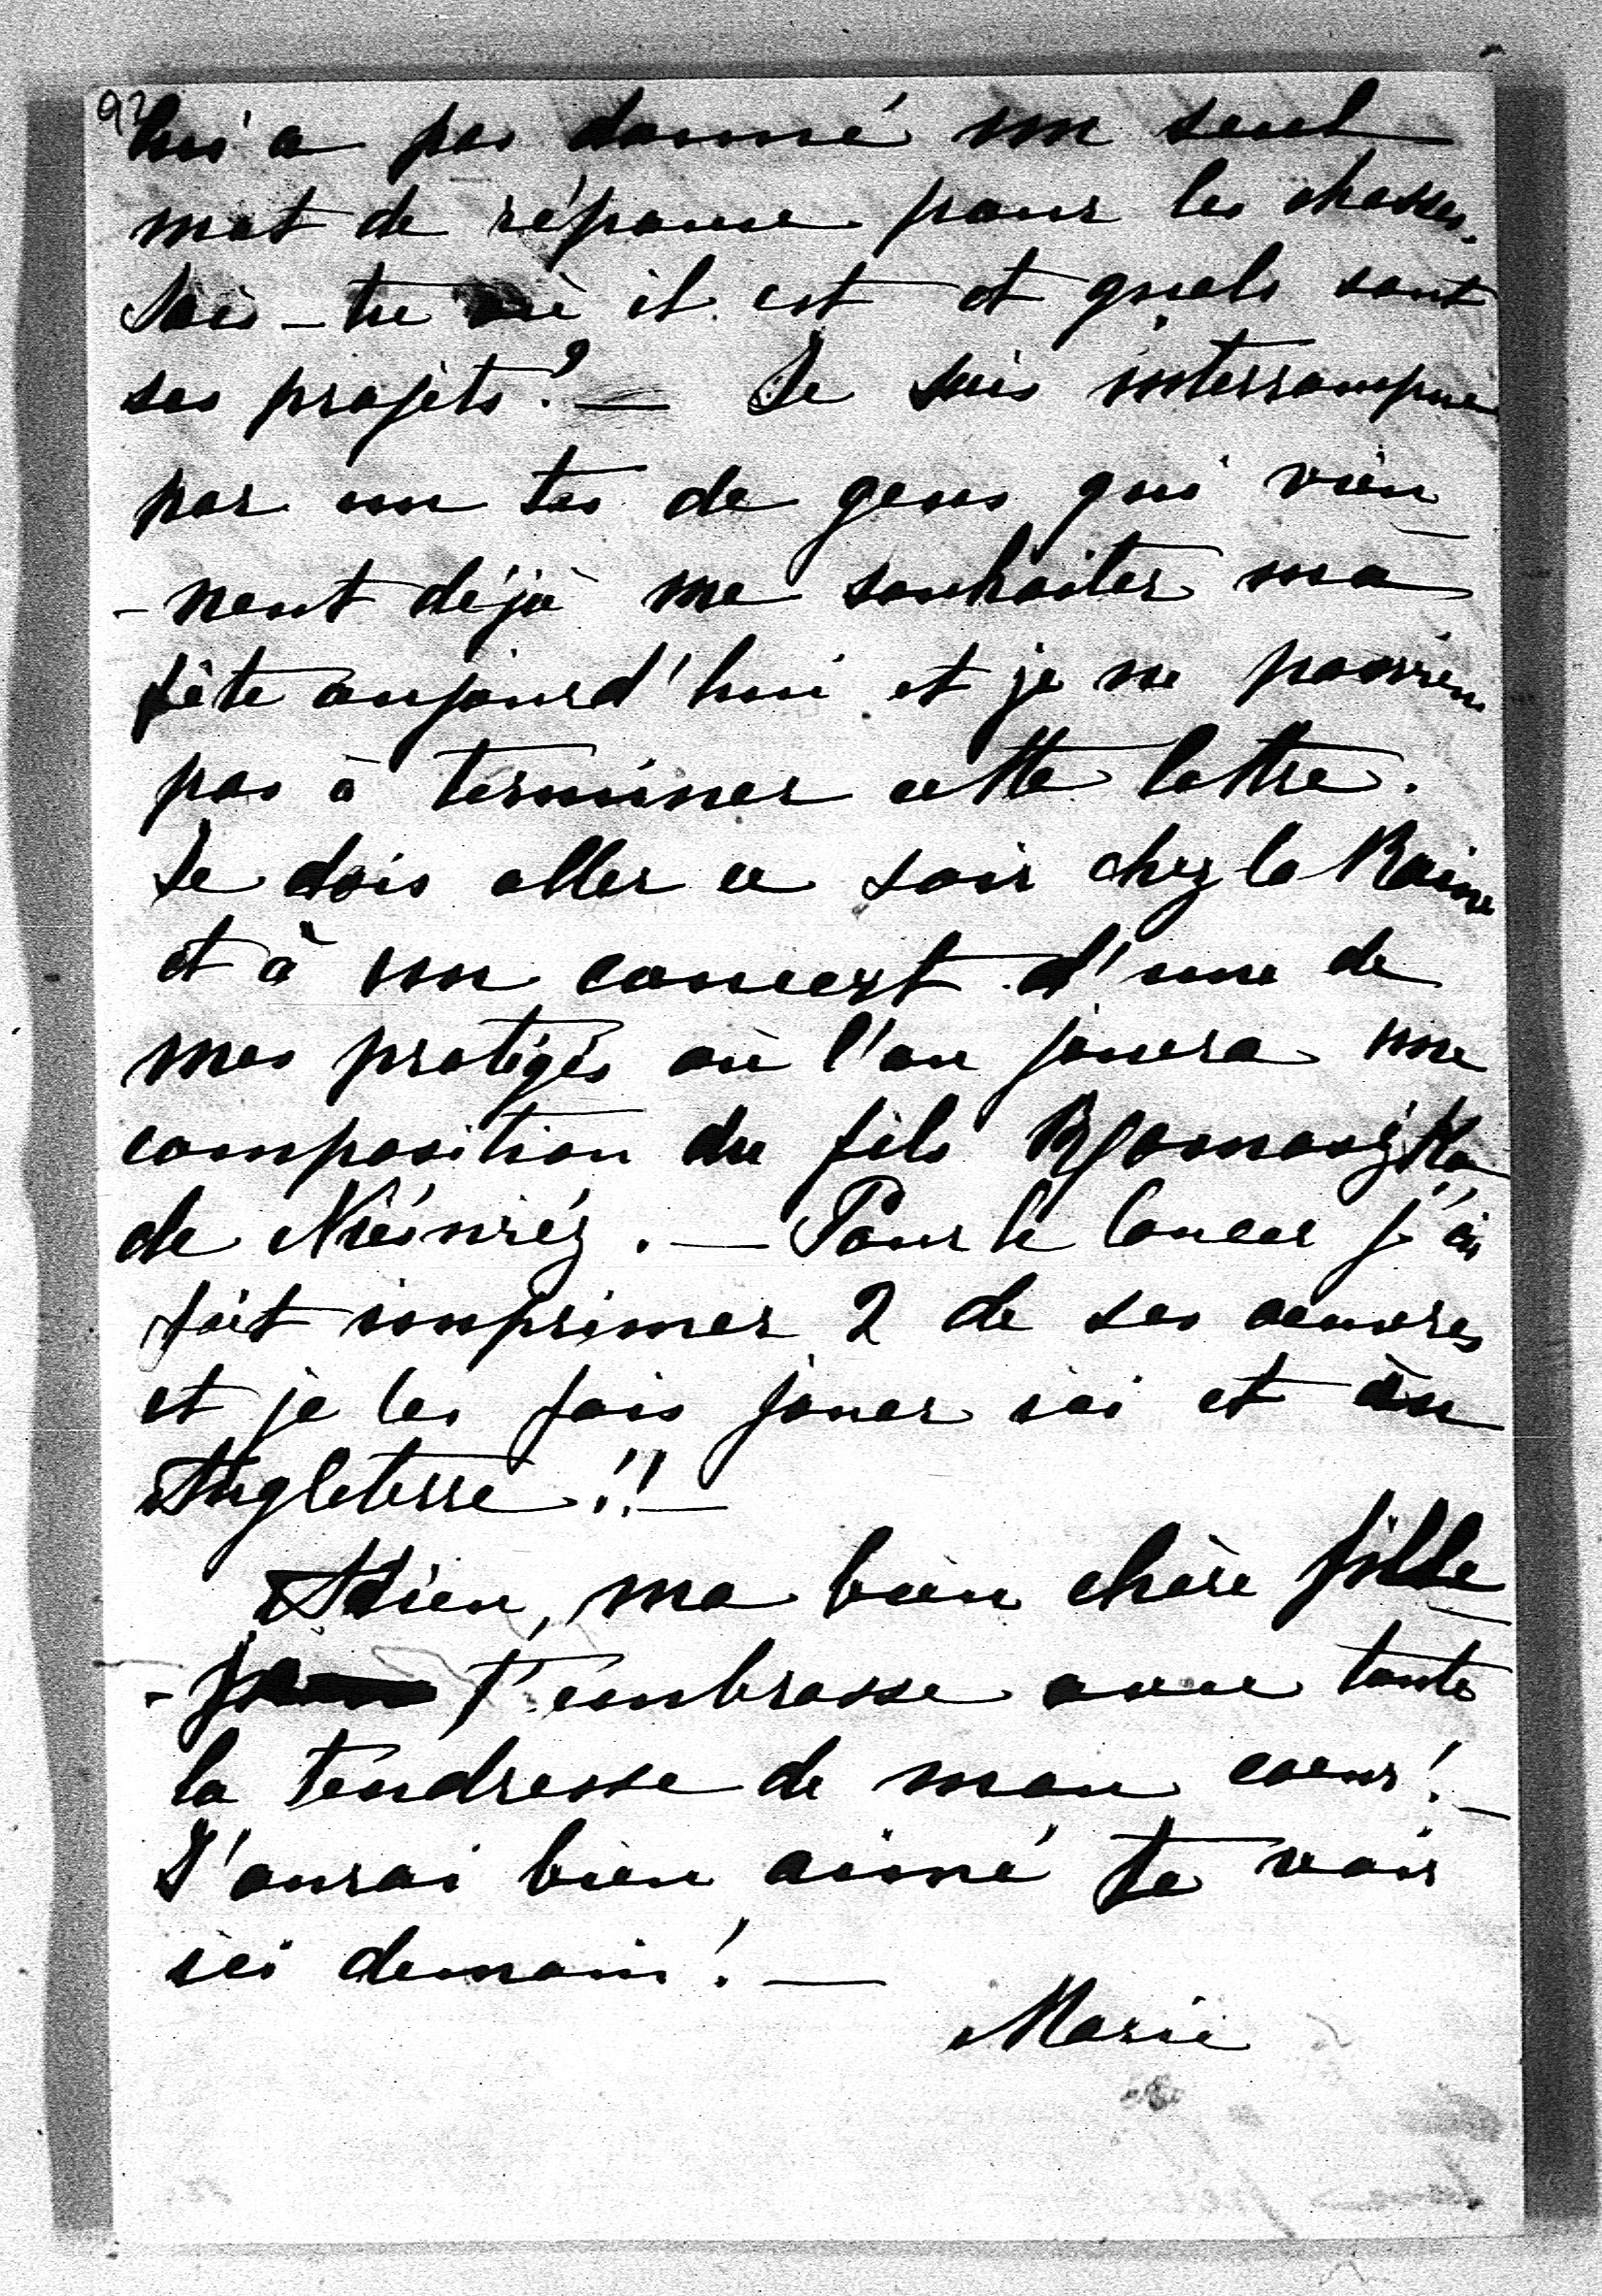 92
lui a pas donné un seul
mot de réponse pour les chasses.
Sais-tu où il est et quels sont
ses projets? — Je suis interrompue
par un tas de gens qui vien
-nent déjà me souhaiter ma
fête aujourd'hui et je ne parviens
pas à terminer cette lettre.
Je dois aller ce soir chez la Reine
et à un concert d'une de
mes protégés où l'on jouera une
composition du fils
de Nieśwież. — Pour le lancer j'ai
fait imprimer 2 de ses oeuvres
et je les fais jouer ici et en
Angleterre!! —
Adieu, ma bien chère fille
- t'embrasse avec toute
la tendresse de mon coeur! —
J'aurai bien aimé te voir
ici demain! —
Marie